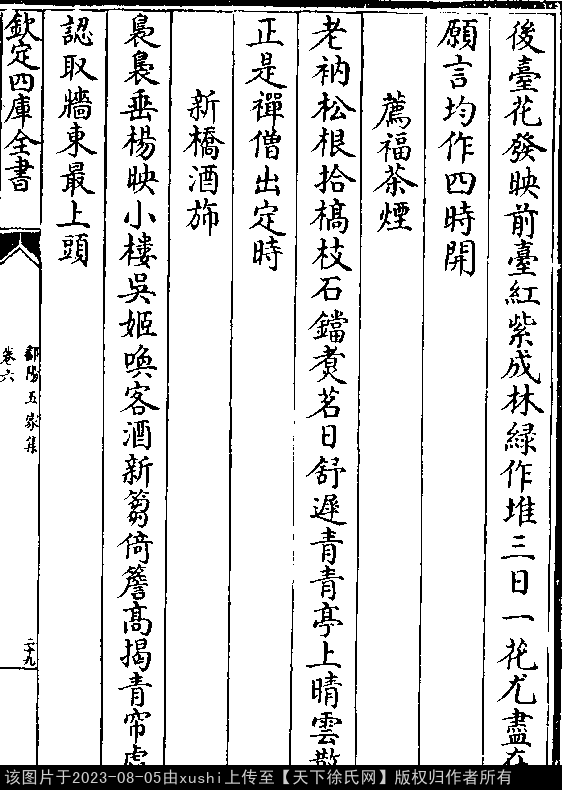 後臺花發映前臺紅紫成林緑作堆三日一花尤盡在
願言均作四時開
薦福茶煙
老衲松根拾槁枝石鐺煑茗日舒遲青青亭上晴雲散
正是禪僧出定時
新橋酒斾
裊裊垂楊映小樓吳姬喚客酒新篘倚簷髙揭青帘處
認取牆東最上頭
欽定四庫全書
鄱陽五家集
卷六
二十九
该图片于2023-08-05由xushi上传至【天下徐氏网】版权归作者所有